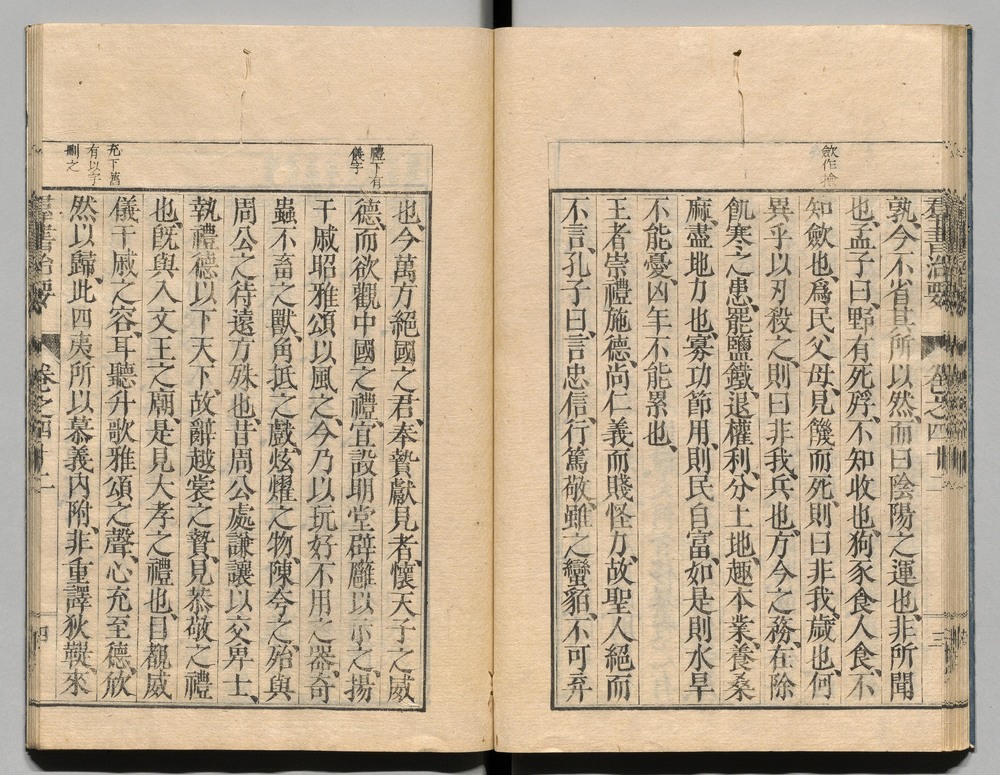 歛作撿
群書治要
卷之四十二
三
孰、今不省其所以然、而曰陰陽之運也、非所聞
也、孟子曰、野有死殍、不知收也、狗豕食人食、不
知斂也、爲民父母、見饑而死、則曰非我、歲也、何
異乎以刃殺之、則曰非我、兵也、方今之務、在除
飢寒之患、罷鹽鐵、退權利、分土地、趣本業、養桑
麻、盡地力也、寡功節用、則民自富、如是則水旱
不能憂、凶年不能累也、
王者崇禮施德、尚仁義而賤怪力、故聖人絕而
不言、孔子曰、言忠信、行篤敬、雖之蠻貊、不可弃
禮下有
儀字
也、今萬方絕國之君、奉贄獻見者、懷天子之威
德、而欲觀中國之禮、宜設明堂辟廱以示之、揚
干戚昭雅頌以風之、今乃以玩好不用之器、奇
蟲不畜之獸、角抵之戲、炫燿之物、陳夸之、殆與
周公之待遠方殊也、昔周公處謙讓以交卑士、
執禮德以下天下、故辭越裳之贄、見恭敬之禮
也、既與入文王之廟、是見大孝之禮也、目覩威
儀干戚之容、耳聽升歌雅頌之聲、心充至德、欣
然以歸、此四夷所以慕義內附、非重譯狄鞮來
充下舊
有以字
刪之
群書治要
卷之四十二
四